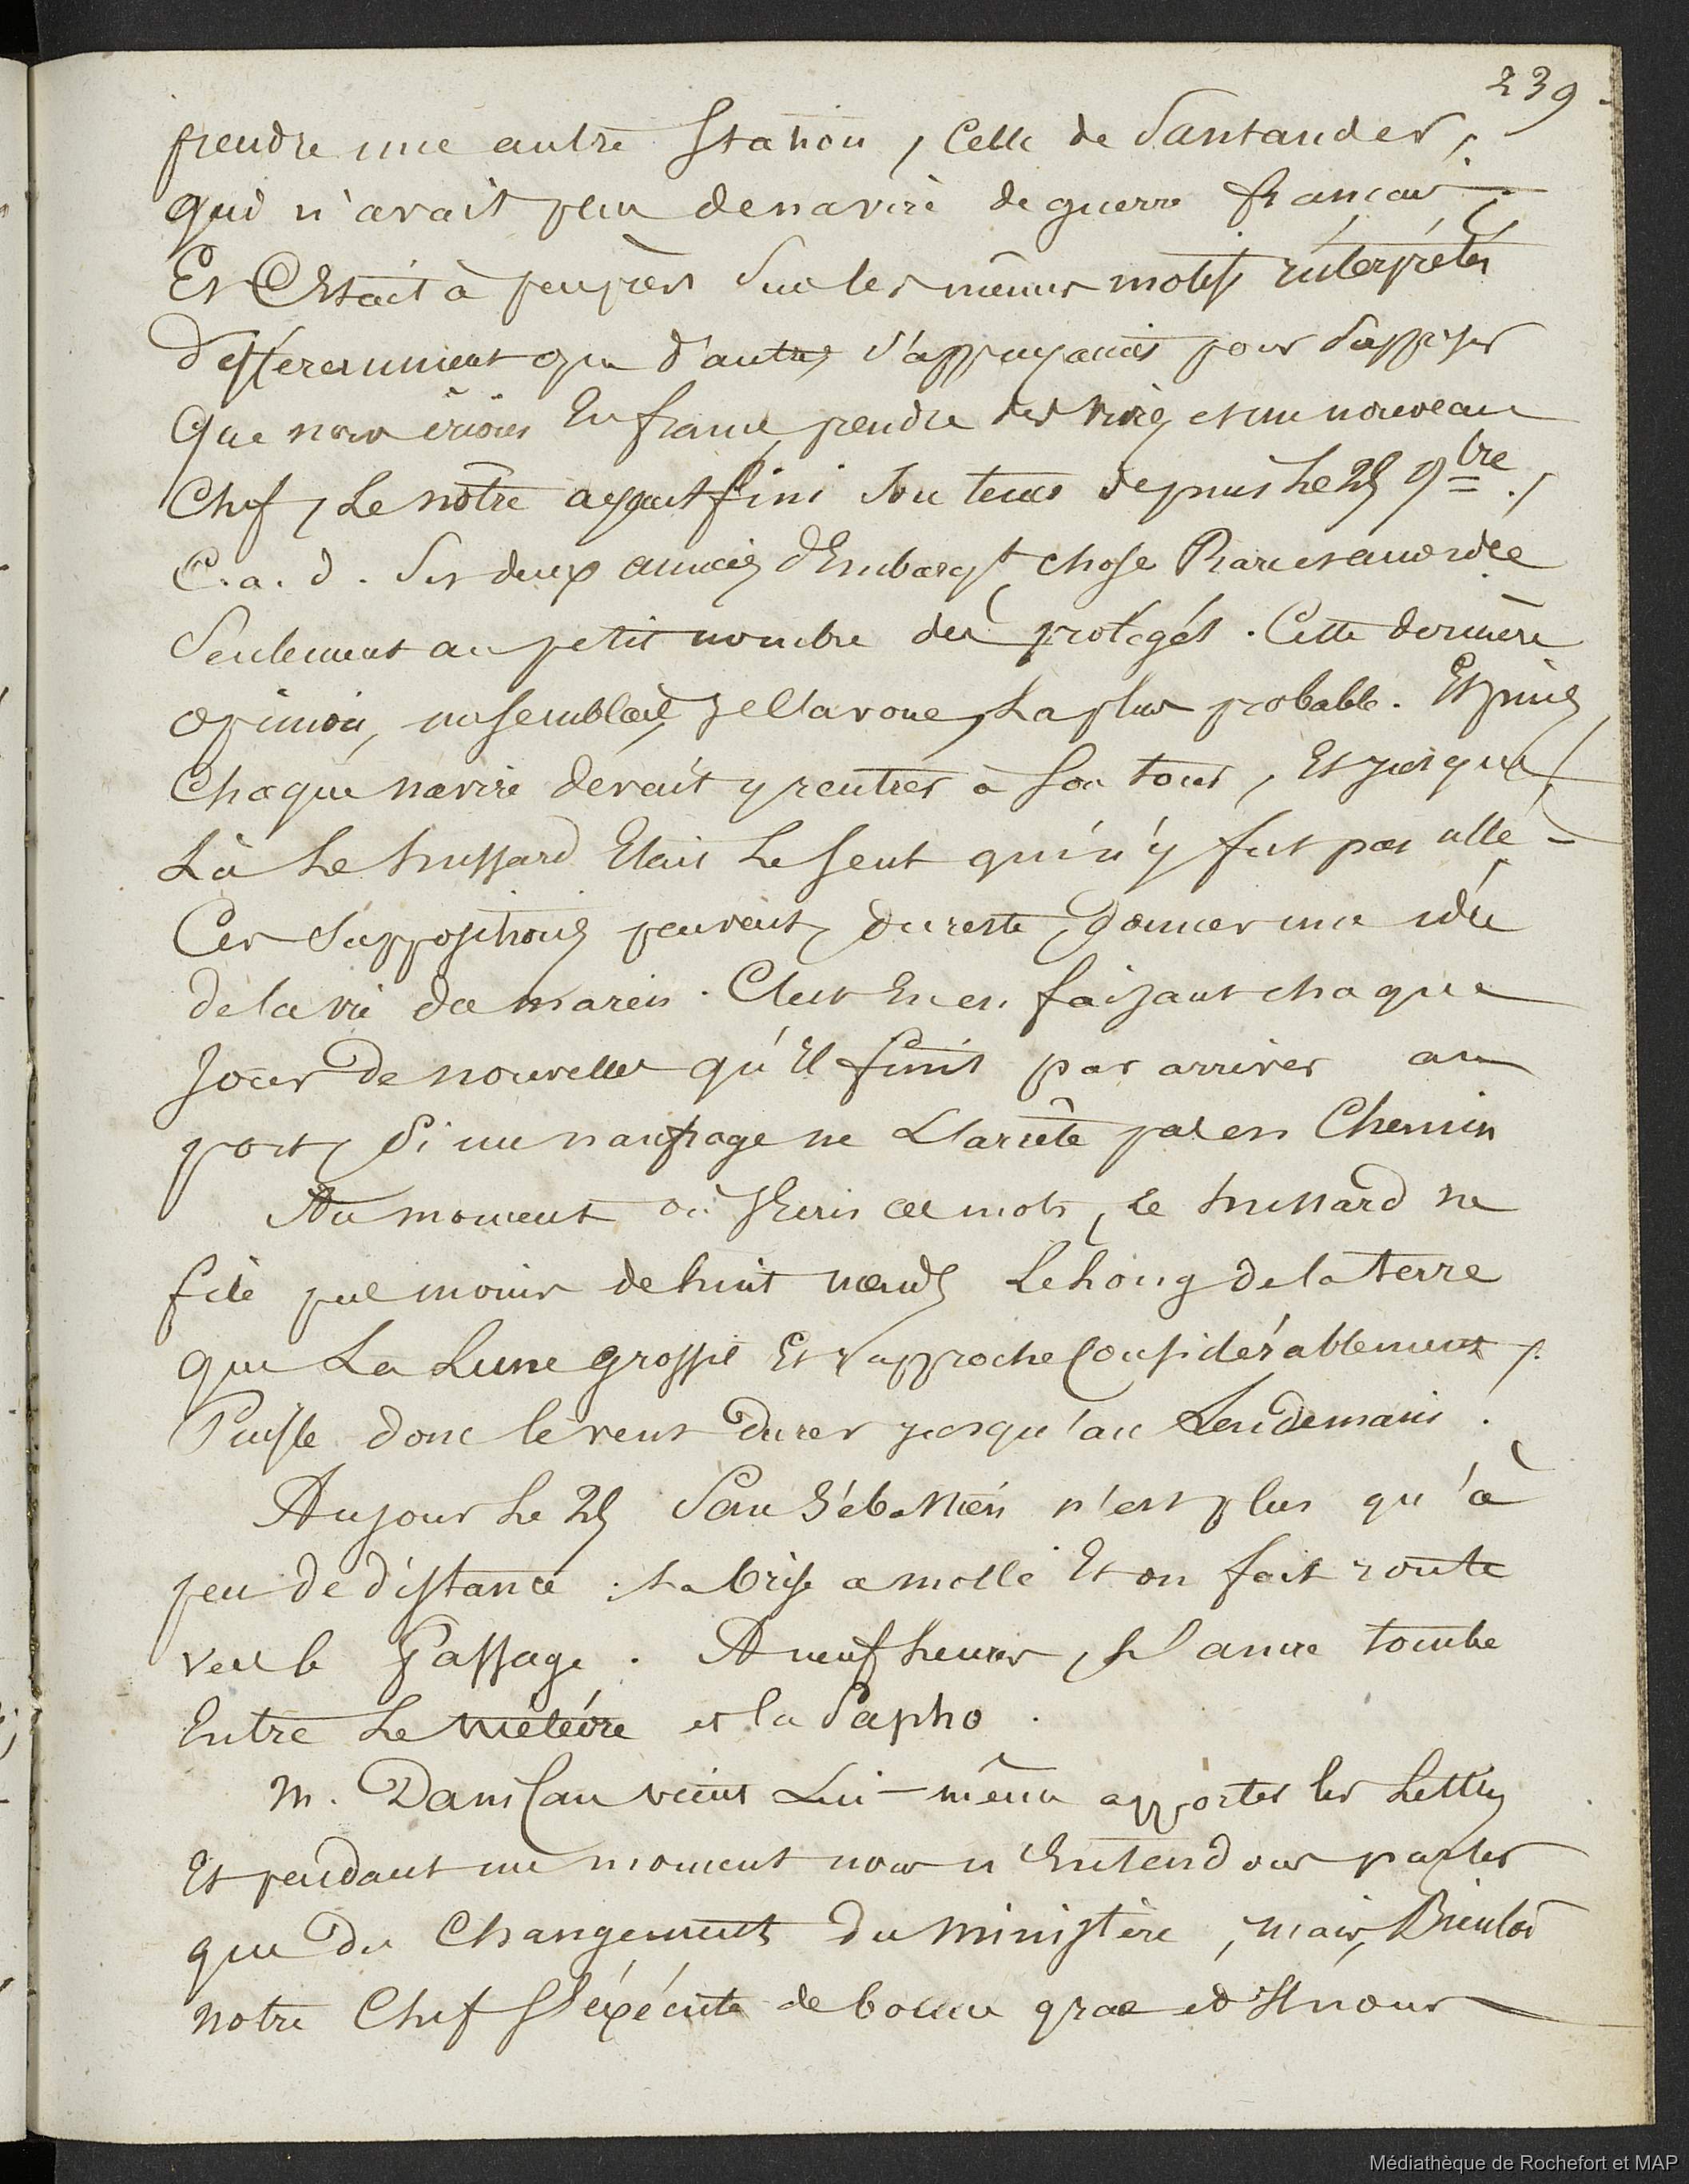 239
prendre une autre Station, Celle de Santander,
qui n'avait plus de navire de guerre français.
Et C'Etait à peu près sur les mêmes motifs interprétés
différemment que d'autres s'appuyaient pour supposer
Que nous irions En france, prendre des vivres et un nouveau
Chef, Le nôtre ayant fini son tems depuis Le 25 9bre,
C.a.d. Ses deux années d'Embarqt, chose Rare et accordée
Seulement au petit nombre des protégés. Cette dernière
opinion, me semblait, je l'avoue, La plus probable. Et puis,
Chaque navire devait y rentrer à Son tour, Et jusque
Là Le hussard Etait Le Seul qui n'y fut pas allé -
Ces Suppositions peuvent, du reste, donner une idée
de la vie du marin. C'est En en faisant chaque
Jour De nouvelles qu'Il finit par arriver au
port, Si un naufrage ne L'arrête pas en Chemin
Au moment où J'Ecris ces mots, Le hussard ne
file pas moins de huit nœuds Le Long de la terre
que La Lune grossit Et rapproche Considérablement,
Puisse donc le vent Durer jusqu'au Lendemain.
Au jour Le 25 San Sébastien n'est plus qu'à
peu de distance. La brise a molli Et on fait route
vers le Passage. A neuf heures, L'ancre tombe
Entre Le météore et la Sapho.
M. Damseau vient Lui-même apporter les Lettres
Et pendant un moment nous n'Entendons parler
que du Changement Du Ministère, mais, Bientôt
notre Chef S'éxécute de bonne grace et Il nous